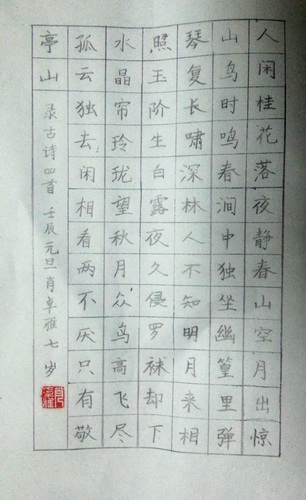 人闲桂花落夜静春山空月出惊
山鸟时鸣春涧中独坐幽篁里弹
琴复长啸深林人不知明月来相
照玉阶生白露夜久侵罗袜却下
水晶帘玲珑望秋月众鸟高飞尽
孤云独去闲相看两不厌只有敬
亭山 录古诗四首 壬辰元旦肖卓雅七岁